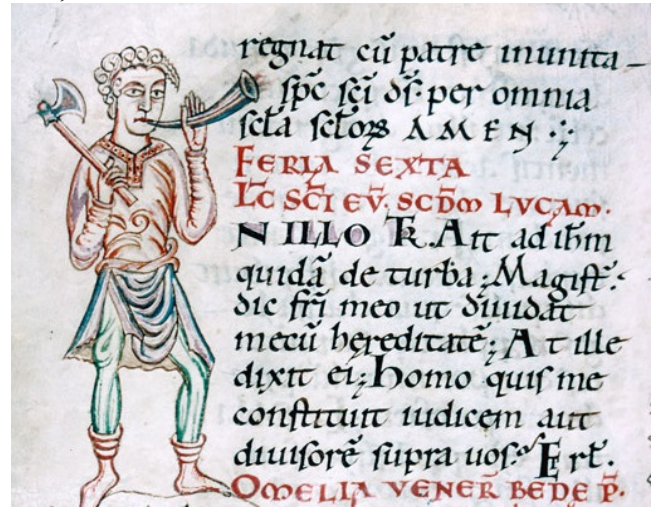 regnat cū patre inunita–
sp̄c sc̄i ds̄. per omnia
sc̄la sc̄lorꝝ AMEN·:
FERIA SEXTA
LC̄ SC̄I EV̄. SCDM̄ LVCAM.
N ILLO TR̄. Ait ad ih̄m
quidā de turba; Magist̄:
dic fr̄i meo ut diuidat
mecū hereditatē; At ille
dixit ei; Homo quis me
constituit iudicem aut
diuisorē supra uos? Et rt̄.
OMELIA VENER̄ BEDE P̄.